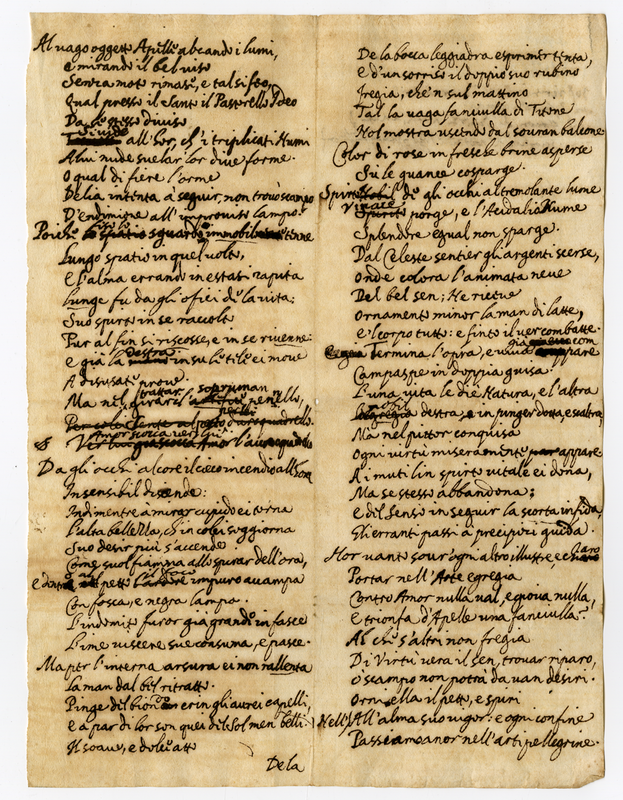 Al vago oggetto Apelle alzando i lumi,
e mirando il bel viso
Senza moto rimase, e tal si feo,
Qual presso il Sante il Pastorello Ideo
Da lo stesso diviso
all'hor, ch'i triplicati Numi
A lui nude svelar lor dive forme.
O qual di fiere l'orme
Delia intenta à seguir, non trovò scampo
D'endimione all'improviso lampo.
Poiche sguardo immobil tenne
Lungo spatio in quel volto,
E l'alma errando in estasi rapita
Lunge fu da gli ofici de la vita;
Suo spirto in se raccolto
Pur al fin si riscosse, e in se rivenne:
e già la destra in su le tele ei move
A disusate prove.
Ma nel trattar sopruman pennello,
Da gli occhi al core il cieco incendio all'hora
Insensibil discende:
Indi mentre a mirar cupido ei torna
L'alta bellezza, ch'in colei soggiorna
Suo desir più s'accende.
Come suol fiamma allo spirar dell'ora,
petto l'ardore impuro avampa
Con fosca, e negra lampa.
L'indomito furor già grande in fasce
L'ime viscere sue consuma, e pasce.
Ma per l'interna arsura ei non rallenta
La man dal bel ritratto.
Pinge del biondo crin gli aurei capelli,
e a par di lor son quei del Sol men belli.
Il soave, e dolce atto
De la
De la bocca leggiadra esprimer tenta,
e d'un sorriso il doppio suo rubino
fregia, che'n sul mattino
Tal la vaga fanciulla di Titone
Nol mostra uscendo dal sovran balcone
Color di rose in fresche brine asperse
Su le guance cosparge.
Spirto di gli occhi al tremolante lume
Vivace porge, e l'Acidalio Nume
Splendore egual non sparge.
Dal Celeste sentier gli argenti scerse,
Onde colora l'animata neve
Del bel sen; Ne riceve
Ornamento minor la man di latte,
e'l corpo tutto: e finto il ver combatte.
Termina l'opra, e già
Campaspe in doppia guisa
L'una vita le diè Natura, e l'altra
Nobil destra, e in pinger dotta e scaltra,
Ma nel pittor conquisa
Ogni virtù miseramente appare
A i muti lin spirto vitale ei dona,
Ma se stesso abbandona;
e del senso in seguir la scorta infida,
Gli erranti passi a precipizi guida.
Hor vanto sovr'ogni altro illustre, e chiaro
Portar nell'Arte egregia
Contro Amor nulla val, e giova nulla,
e trionfa d'Apelle una fanciulla.
Ah che s'altri non fregia
Di Virtù vera il sen, trovar riparo,
o scampo non potrà da van desiri.
Orni ella il petto, e spiri
Nell'All'alma suo vigor: e ogni confine
Passeremo ancor nell'arti pellegrine.